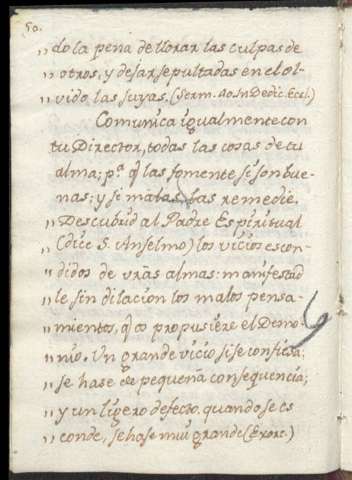 50.
,, do la pena de llorar las culpas de
,, otros, y dejar sepultadas en el ol-
,, vido, las suyas. (Serm. 40. In Dedic. Eccl.)
Comunica igualmente con
tu Director, todas las cosas de tu
alma; p.ª q̃ las fomente si son bue-
nas: y si malas, las remedie.
,, Descubrid al Padre Espiritual
,, (dice S. Anselmo) los vicios escon-
,, didos de vrãs almas: manifestad
,, le sin dilacion los malos pensa-
,, mientos, q̃ os propusiere el Demo-
,, nio. Un grande vicio si se confiesa,
,, se hase de pequeña consequencia;
,, y un ligero defecto, quando se es
,, conde, se hase mui grande (Exort.)